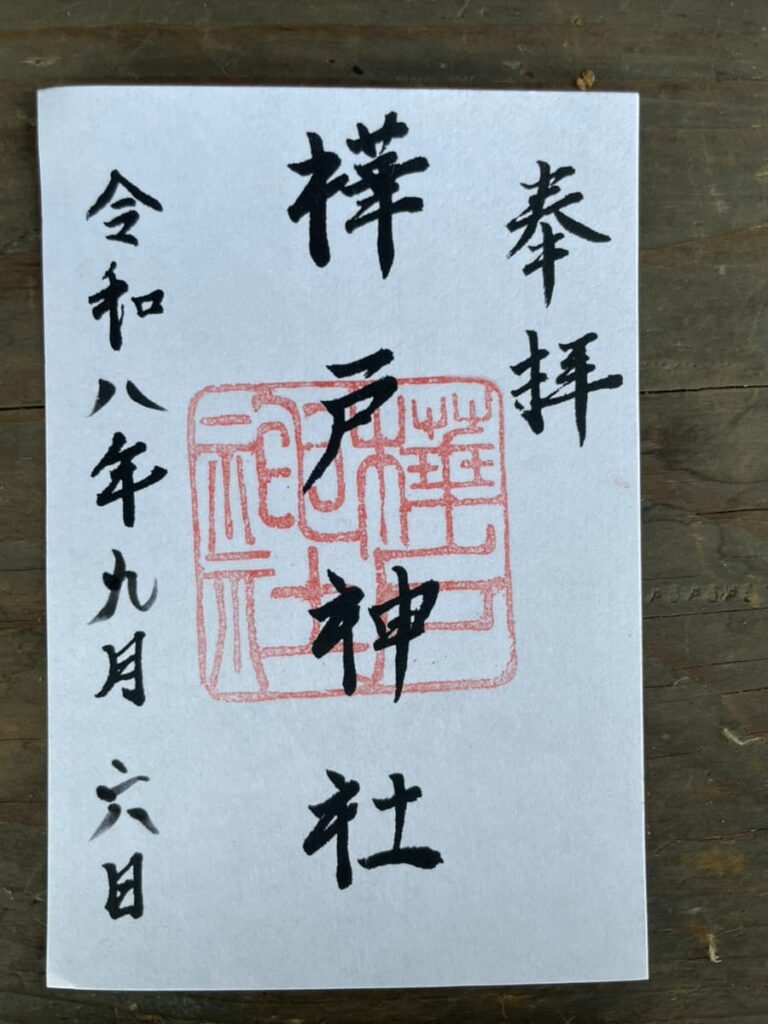 奉拝
樺戸神社
樺戸神社
令和八年九月六日